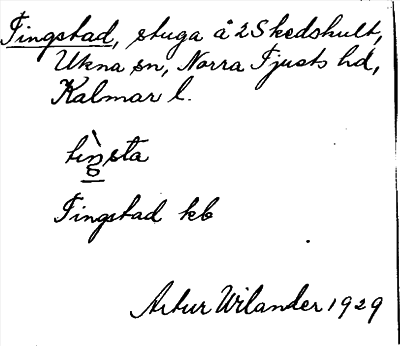 Tingstad, stuga å 2 Skedshult,
Ukna sn, Norra Tjusts hd,
Kalmar l.
tìŋsta
Tingstad kb
Artur Wilander 1929